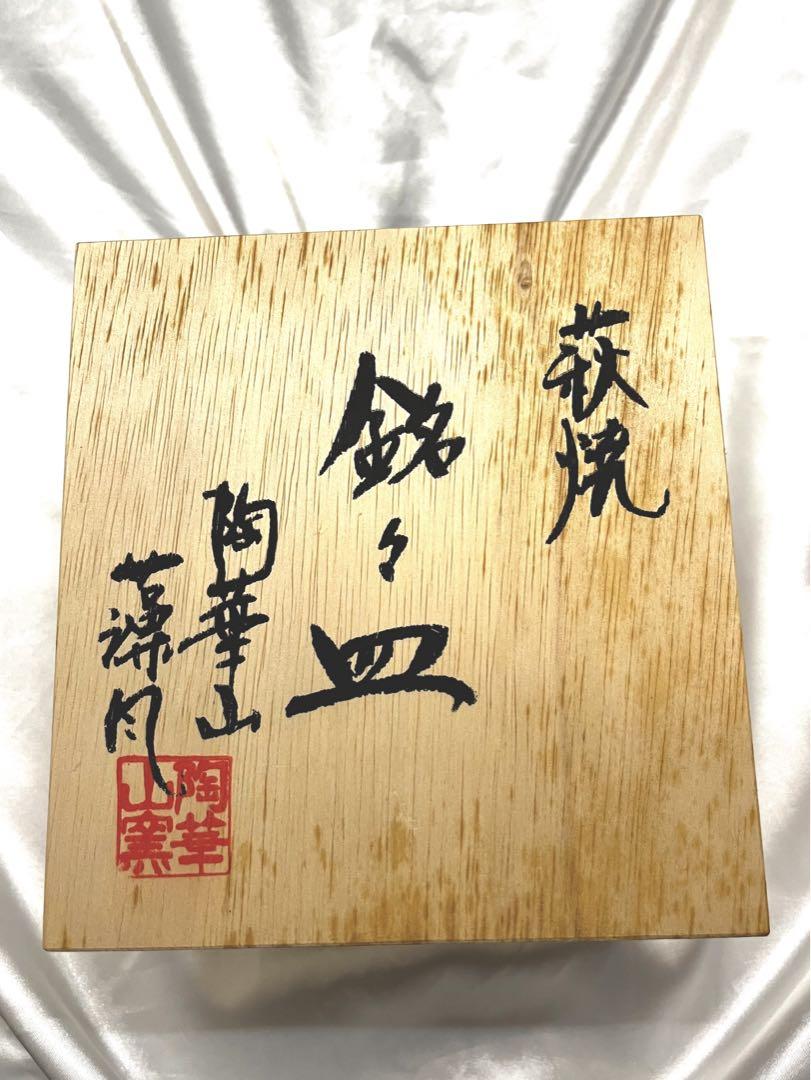 萩焼
銘々皿
陶華山
陶華山窯